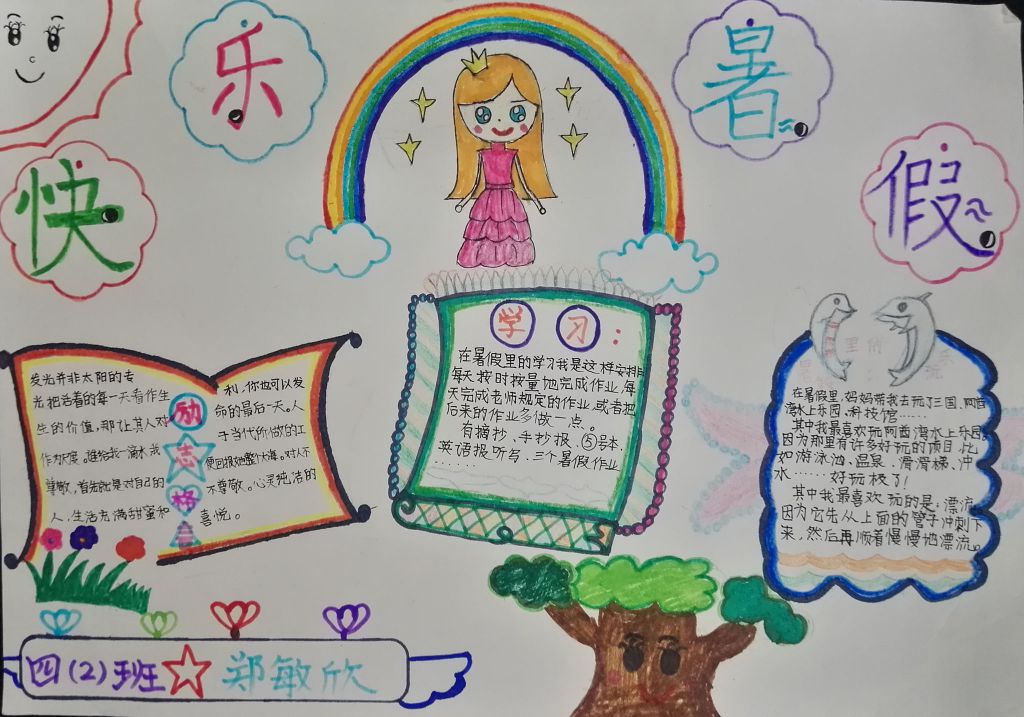 快
乐
暑
假
励志格言
发光并非太阳的专利,你也可以发
光把活着的每一天看作生命的最后一天。人
生的价值,那让其人对于当代所做的工
作为尺度。谁给我一滴水,我便回报他整个大海。对人不
尊敬,首先就是对自己的不尊敬。心灵纯洁的
人,生活充满甜蜜和喜悦。
学习:
在暑假里的学习我是这样安排
每天按时按量地完成作业,每
天完成老师规定的作业,或者把
后来的作业多做一点。
有摘抄、手抄报、⑤号本、
英语报听写、三个暑假作业
………
里的
在暑假里,妈妈带我去玩了三国,阿酋
海水上乐园、科技馆……
其中我最喜欢玩阿酋海水上乐园,
因为那里有许多好玩的项目,比
如游泳池、温泉、滑滑梯、冲
水……好玩极了!
其中我最喜欢玩的是:漂流,
因为它先从上面的管子冲刺下
来,然后再顺着慢慢地漂流。
四(2)班 郑敏欣